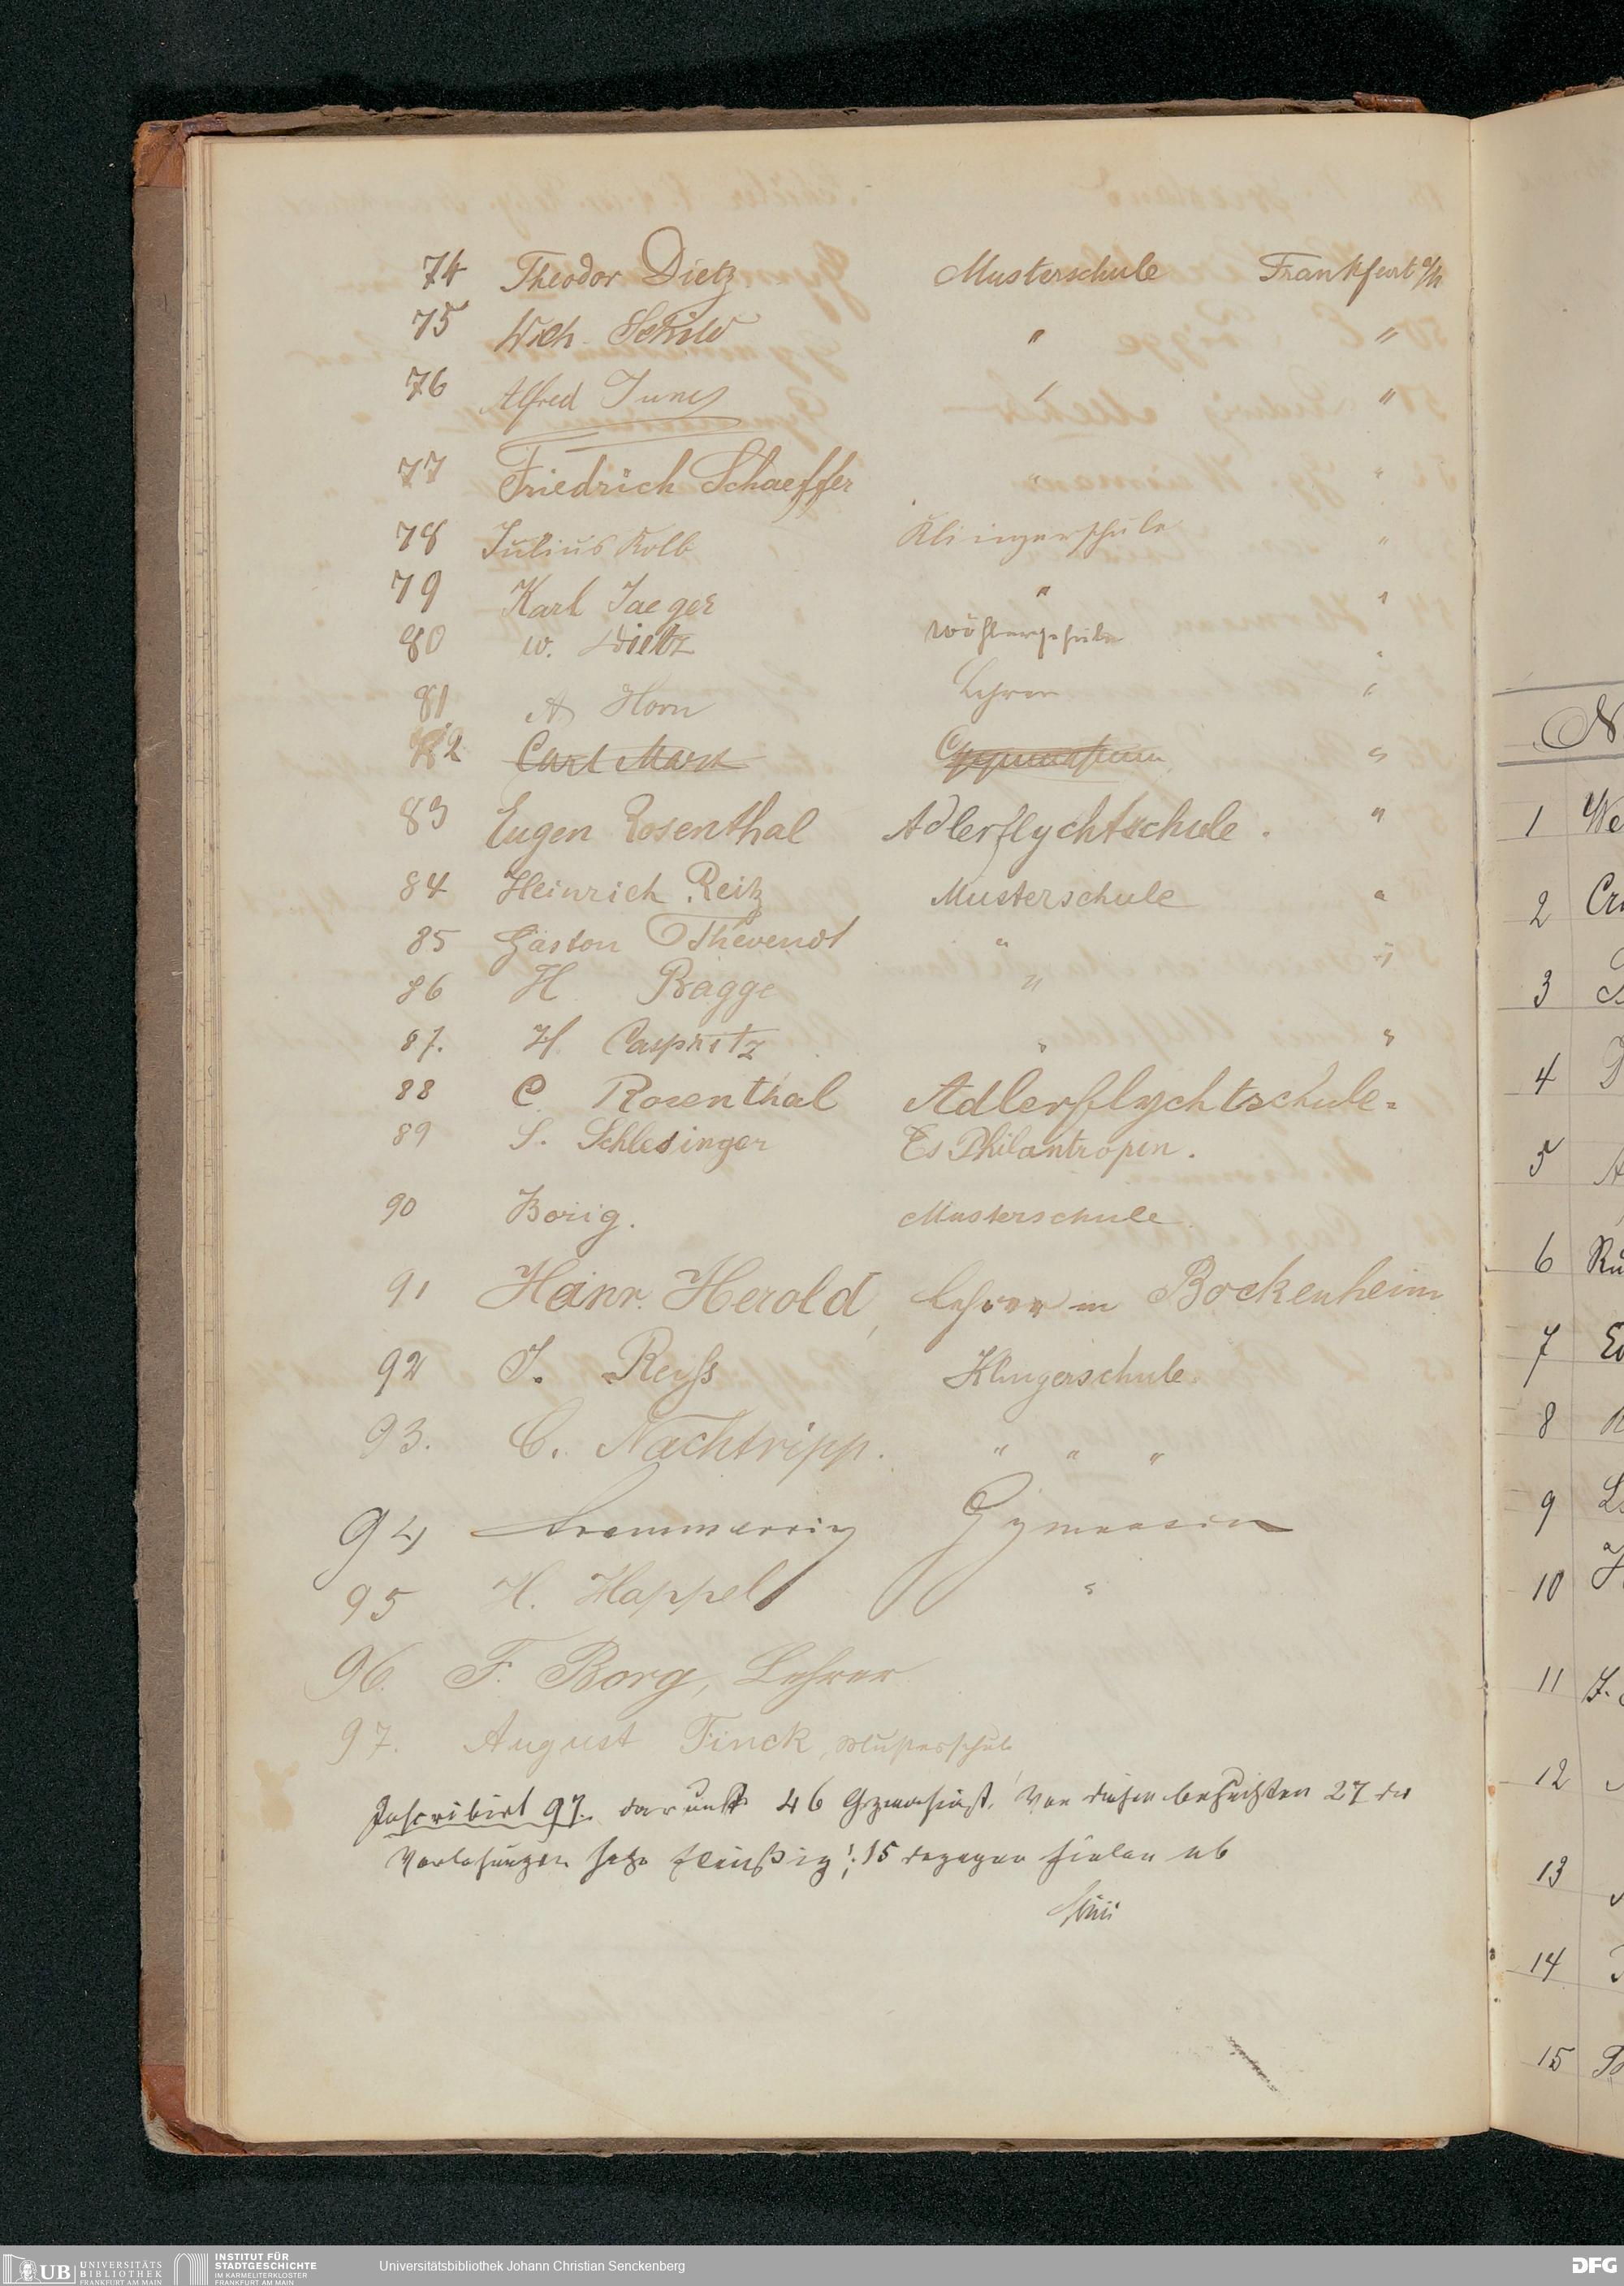 74 Theodor Dietz Musterschule Frankfurt a/M
75 Wilh. Schild " "
76 Alfred Junes " "
77 Friedrich Schaeffer " "
78 Julius Kolb Klingerschule "
79 Karl Jaeger " "
80 W. Dietz Wöhlerschule "
81 A Horn Lehrer "
82 Carl Marx Gymnasium "
83 Eugen Rosenthal Adlerflychtschule. "
84 Heinrich Reitz Musterschule "
85 Gaston Thevenot " "
86 H Bagge "
87. H. Caspritz " "
88 C. Rosenthal Adlerflychtschule.
89 S. Schlesinger Es Philantropin.
90 Borig. Musterschule
91 Heinr. Herold, Lehrer in Bockenheim
92 J. Reyss Klingerschule
93. C. Nachtripp. " " "
94 Gymnasium
95 H. Happel "
96. F. Borg, Lehrer
97. August Finck, Musterschule
Inscribirt 97. darunter 46 Gymnasiast. Von diesen besuchten 27 die
Vorlesungen sehr fleißig; 15 dagegen fielen ab
N
1 We
2 Cr
3
4
5 A
6 Ru
7
8
9
10
11 J.
12
13
14
15
UB UNIVERSITÄTS
BIBLIOTHEK
FRANKFURT AM MAIN
INSTITUT FÜR
STADTGESCHICHTE
IM KARMELITERKLOSTER
FRANKFURT AM MAIN
Universitätsbibliothek Johann Christian Senckenberg
DFG